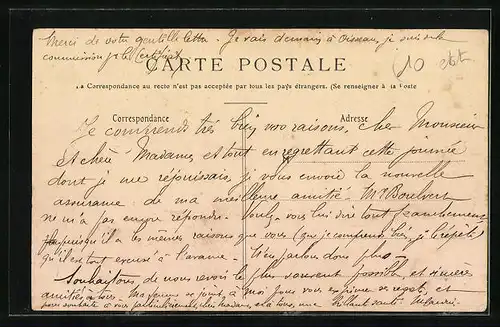 Merci de votre gentille lettre. Je vais demain à Oisseau, je suis
commission pr le Certificat
10
CARTE POSTALE
La Correspondance au recto n'est pas acceptée par tous les pays étrangers. (Se renseigner à la Poste
Correspondance
Adresse
Je comprends très bien vos raisons, cher Monsieur
et chère Madame, et tout en regrettant cette journée
dont je me réjouissais, je vous envoie la nouvelle
assurance de ma meilleure amitié. Mr
ne m'a pas encore répondu. Voulez-vous lui dire tout franchement
puisqu'il a les mêmes raisons que vous (que je comprends bien, je le répète)
qu'il est tout excusé à l'avance. N'en parlons donc plus.
Souhaitons de nous revoir le plus souvent possible, et sincères
amitiés à tous. Ma femme se joint à moi pour vous exprimer ses regrets, et
pour souhaiter à vous particulièrement, chère Madame, et à tous, une santé